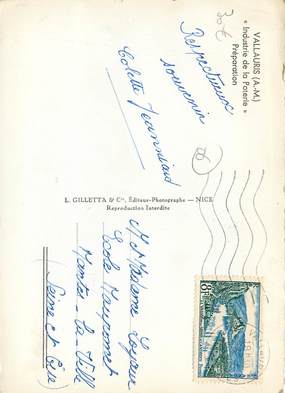 VALLAURIS (A.-M.)
« Industrie de la Poterie »
Préparation
30€
Respectueux
souvenir
Colette Jeanniard
L. GILLETTA & Cie, Éditeur-Photographe — NICE
Reproduction Interdite
Madame Loyeux
Ecole Maupomet
Mantes-la-Ville
(Seine et Oise)
8F